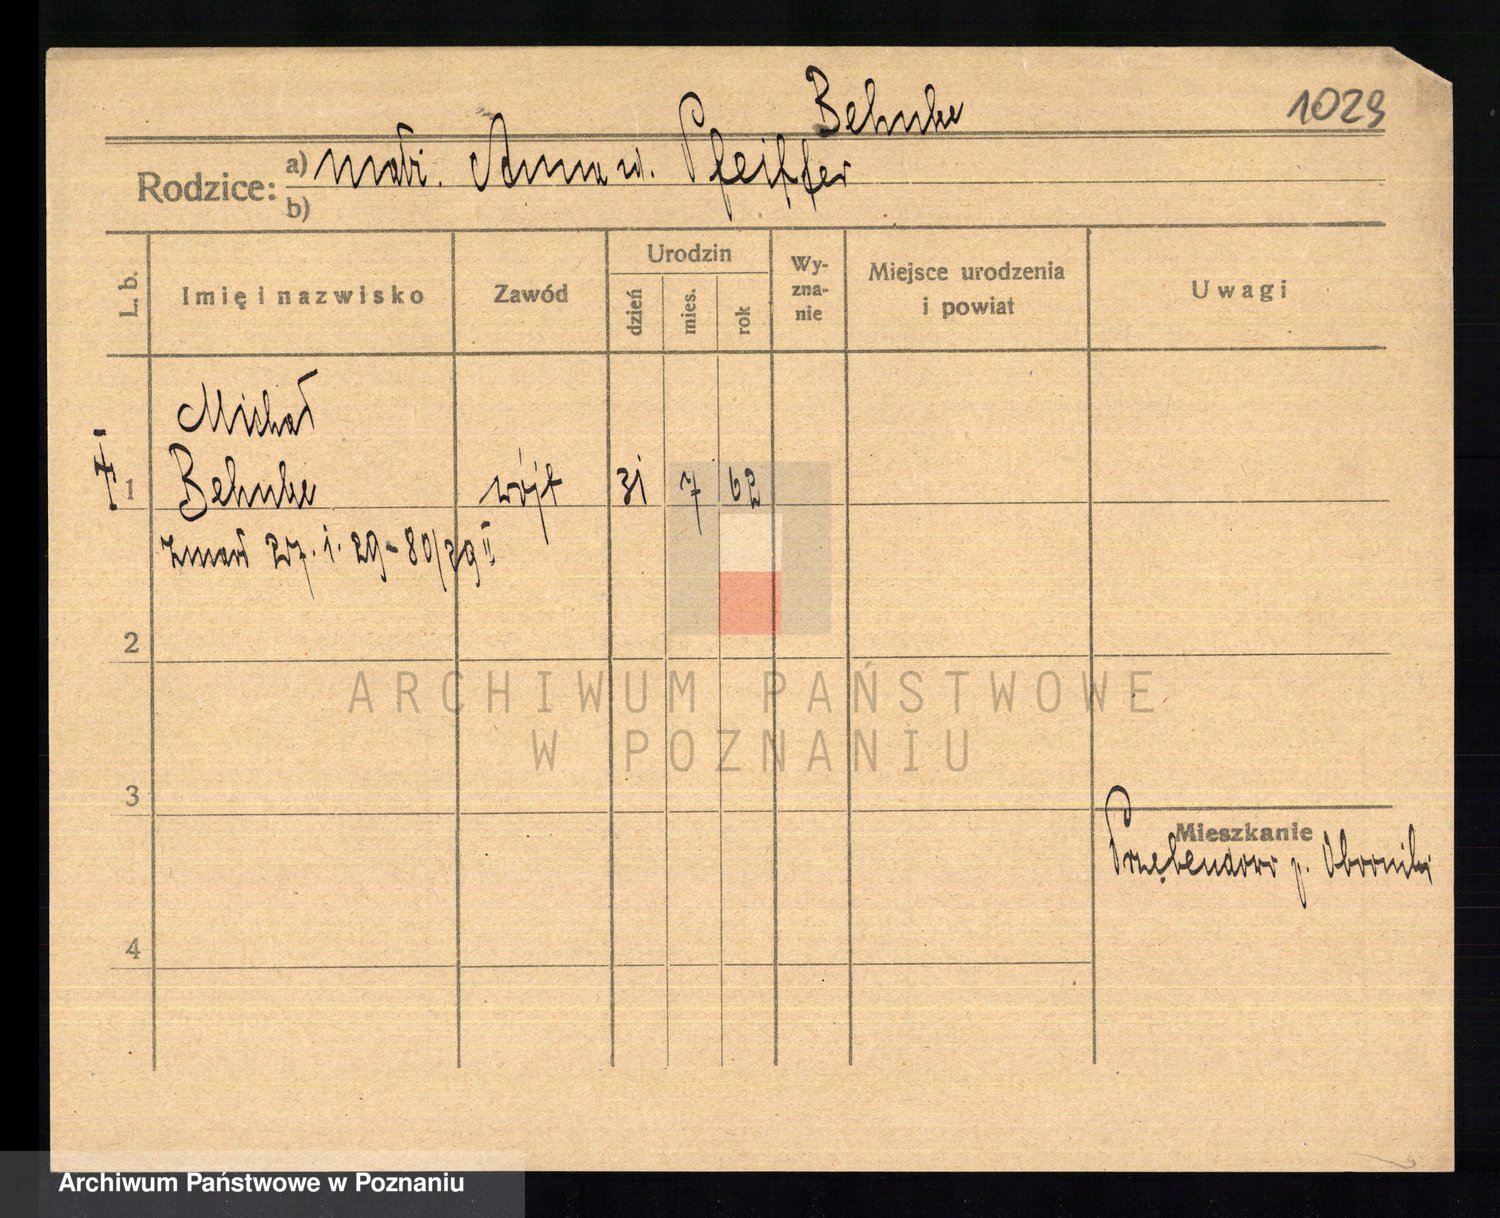 Behnke
1029
Rodzice:
a) małż. Anna ur. Pfeiffer
b)
L. b.
Imię i nazwisko
Zawód
Urodzin
dzień
mies.
rok
Wy-
zna-
nie
Miejsce urodzenia
i powiat
Uwagi
Michał
1 Behnke wójt 31 7 62
zmarł 27. 1. 29 - 80/29 II
2
ARCHIWUM PAŃSTWOWE
W POZNANIU
3
Mieszkanie
p. Oborniki
4
Archiwum Państwowe w Poznaniu